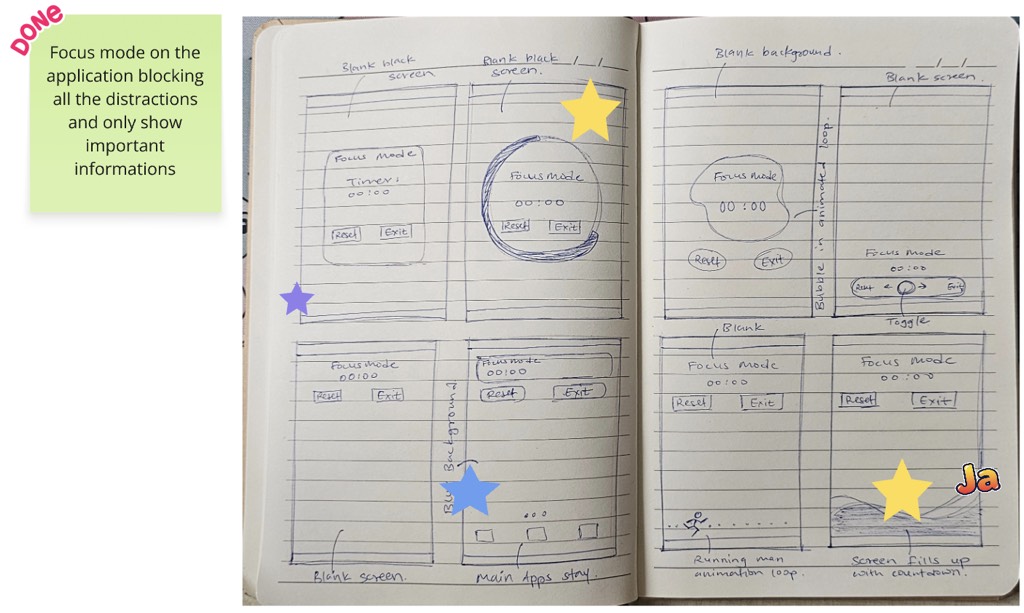 DONe
Focus mode on the
application blocking
all the distractions
and only show
important
informations
Blank black
screen
Blank black
screen.
Focus Mode
Timer:
00:00
Reset Exit
Focus Mode
00:00
Reset Exit
Blank background.
Blank screen.
Focus Mode
00:00
Reset Exit
Bubble in animated loop.
Focus Mode
00:00
Reset ← → Exit
Toggle
Focus Mode
00:00
Reset Exit
Blank screen.
Background
Focus mode
00:00
Reset Exit
Main Apps stay.
Blank
Focus Mode
00:00
Reset Exit
Running man
animation loop.
Focus Mode
00:00
Reset Exit
Ja
Screen fills up
with countdown.